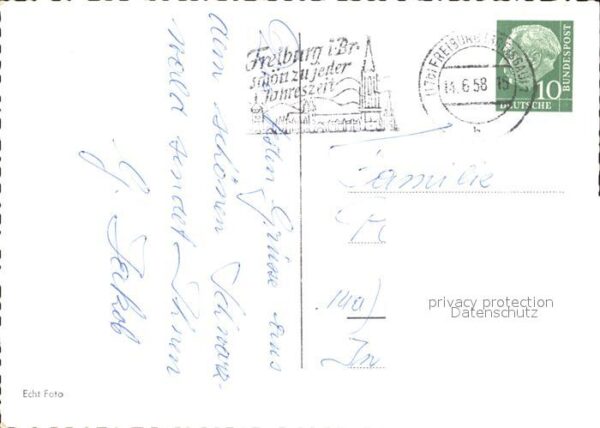 Freiburg i. Br.
schön zu jeder
Jahreszeit
(17b) FREIBURG (BREISGAU) 1
14.6.58-15
h
10
DEUTSCHE BUNDESPOST
Die besten Grüsse aus
dem schönen Schwarz-
wald sendet Ihnen
G. Jakob
Familie
(14a)
privacy protection
Datenschutz
Echt Foto